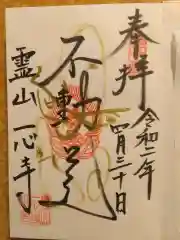 奉拝
令和二年
四月三十日
不動尊
霊山一心寺